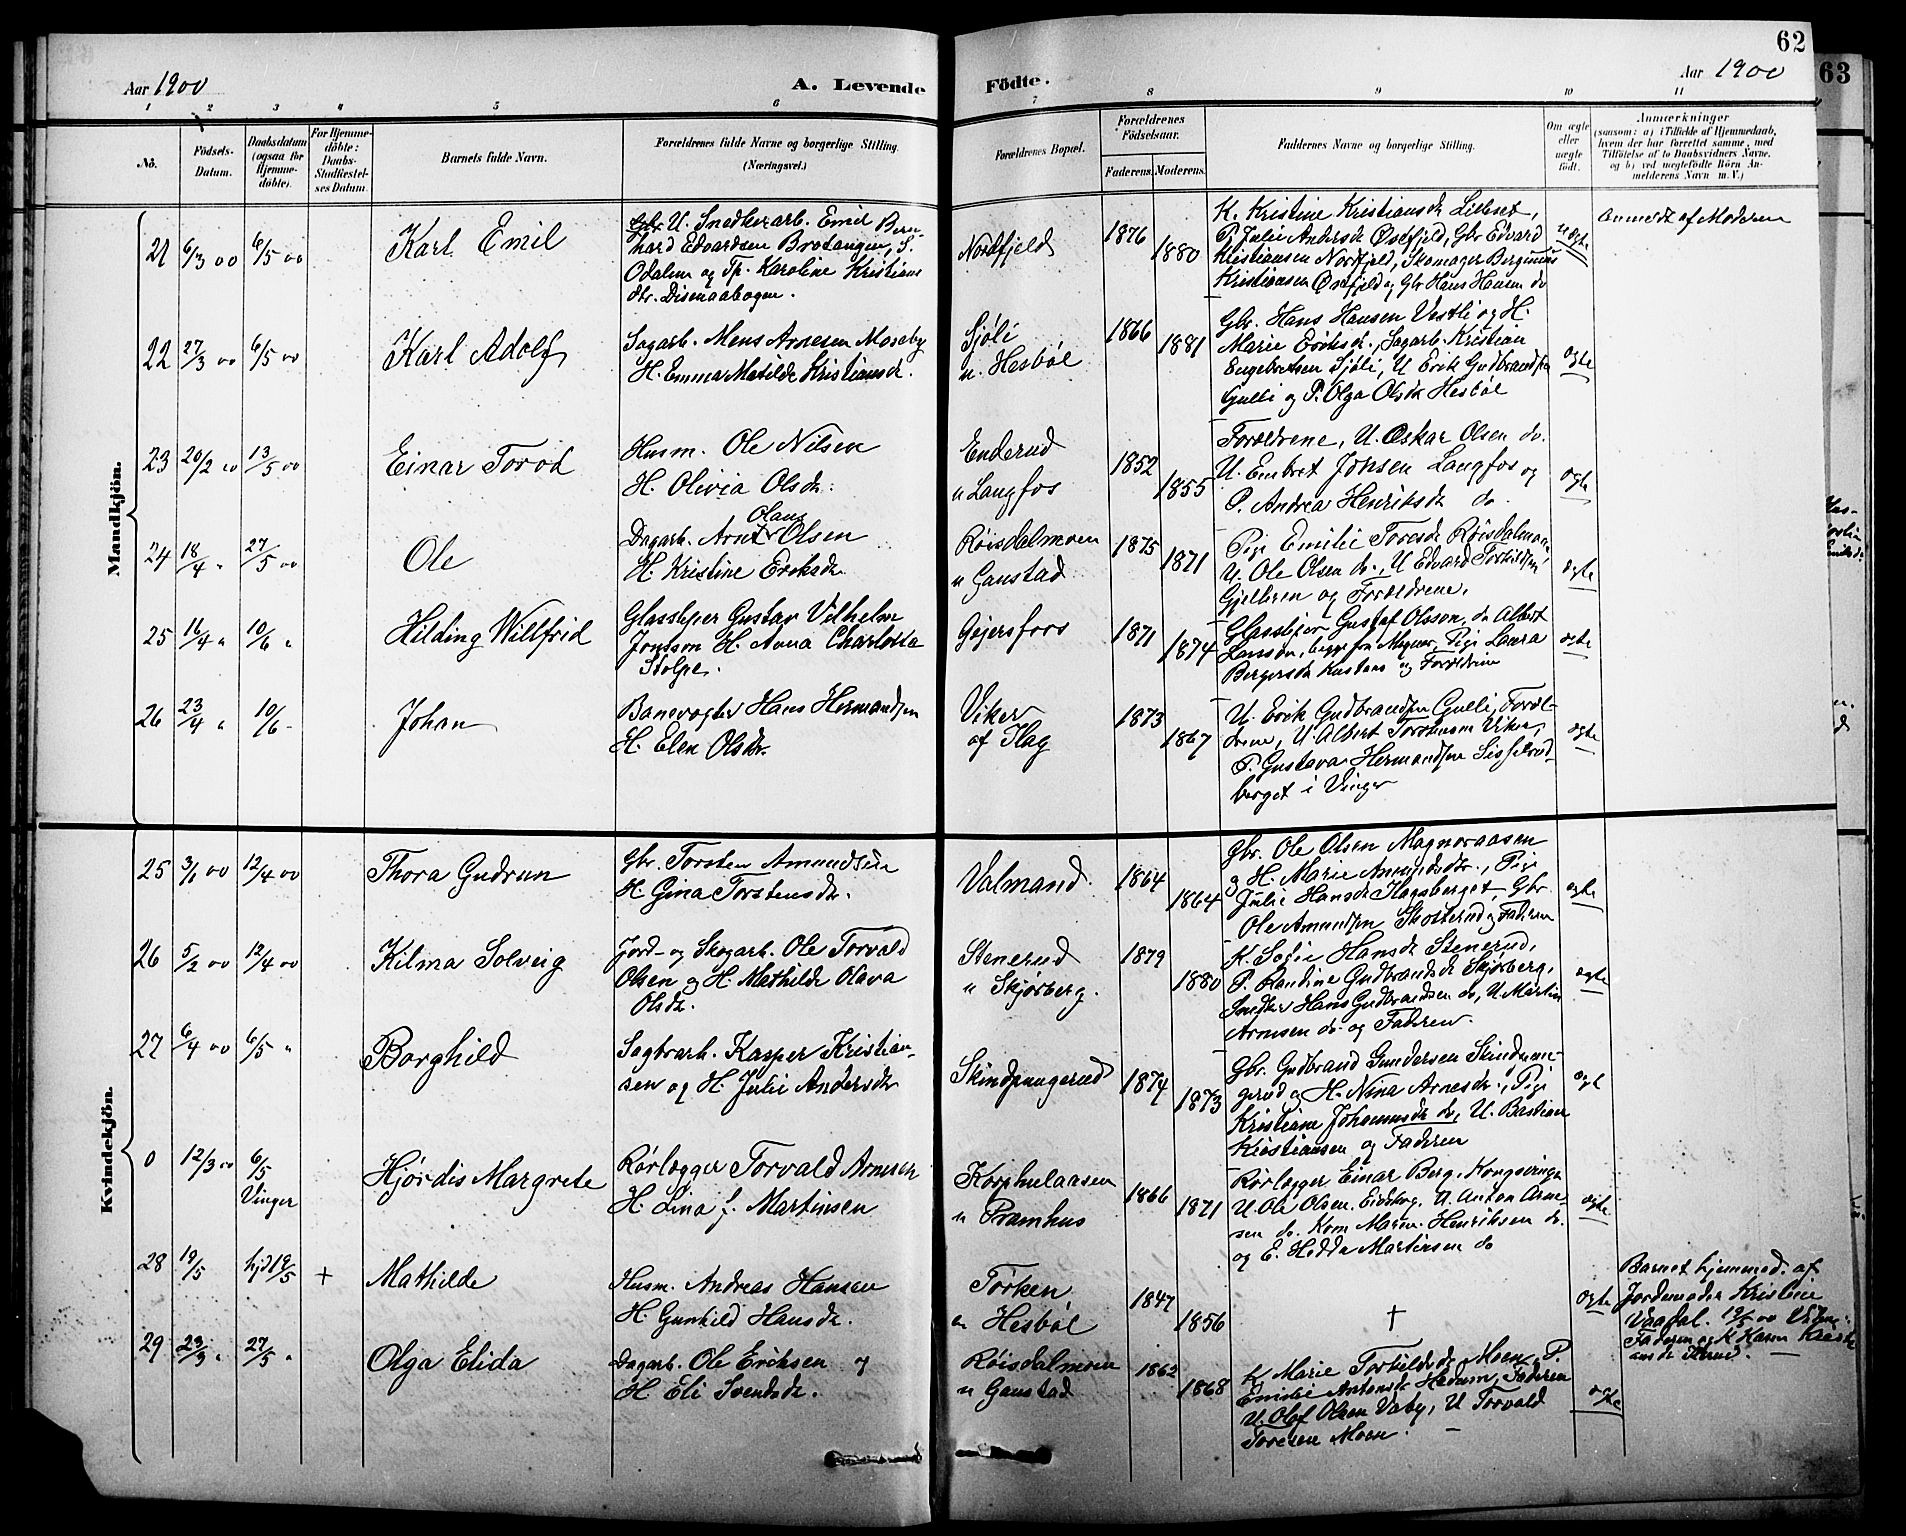 62
63
Aar 1900
A. Levende Födte.
Aar 1900
1 2 3 4 5 6 7 8 9 10 11
No.
Födsels-
Datum.
Daabsdatum
(ogsaa for
Hjemme-
döbte).
For Hjemme-
döbte:
Daabs-
Stadfæstel-
ses Datum.
Barnets fulde Navn.
Forældrenes fulde Navne og borgerlige Stilling.
(Næringsvei.)
Forældrenes Bopæl.
Forældrenes
Födselsaar.
Faderens. Moderens.
Faddernes Navne og borgerlige Stilling.
Om ægte
eller
uægte
födt.
Anmærkninger
(saasom: a) i Tilfælde af Hjemmedaab,
hvem der har forrettet samme, med
Tilföielse af to Daabsvidners Navne,
og b) ved uægtefödte Börn An-
melderens Navn m. V.)
Mandkjön.
21 6/3 00 6/5 00
Karl Emil
Gbr. U. Snedkerarb. Emil Bern-
hard Edvardsen Brotangen, S.
Odalen og Tp. Karoline Kristians
dtr. Disenaabogen.
Nordfjeld
1876 1880
K. Kristine Kristiansdr Lilleset,
P. Julie Andersdr Østfjeld, Gbr Edvard
Kristiansen Nordfjeld, Skomager Berginius
Kristiansen Østfjeld og Gbr Hans Hansen do
uægte
Anmeldt af Moderen
22 27/3 00 6/5 00
Karl Adolf
Sagarb. Mens Arnesen Moseby
H. Emma Matilde Kristiansdr.
Sjøli
u. Hesbøl
1866 1881
Gbr. Hans Hansen Vestli og H.
Marie Eriksdr., Sagarb. Kristian
Engebretsen Sjøli, U Erik Gudbrandsen
Gulli og P. Olga Olsdr Hesbøl
ægte
23 20/2 00 13/5 00
Einar Torod
Husm. Ole Nilsen
H. Olivia Olsdr.
Enderud
u Langfos
1852 1855
Forældrene, U. Oskar Olsen do.
U. Embret Johsen Langfos og
P. Andrea Henriksdr do
ægte
24 18/4 " 27/5 00
Ole
Olaus
Dagarb. Arnt Olsen
H. Kristine Eriksdr
Røisdalmoen
u Gaustad
1875 1871
Pige Emilie Toresdr Røisdalmoen
U. Ole Olsen do., U Edvard Torkildsen
Gjelbren og Forældrene.
ægte
25 16/4 " 10/6 "
Hilding Willfrid
Glassliper Gustav Vilhelm
Jonsson H. Anna Charlotta
Stolpe.
Gejersfors
1871 1874
Glassliper Gustaf Olsson, do Albert
Larsson, begge fra Magnor, Pige Laura
Bergersdr Kastaas og Forældrene
ægte
26 23/4 " 10/6 -
Johan
Banevogter Hans Hermandsen
H. Elen Olsdr.
Viker
af Flag
1873 1867
U. Erik Gudbrandsen Gulli, Foræl-
drene, U. Albert Torstensen Viker,
P. Gustava Hermandsen Sisselrud-
berget i Vinger
ægte
Kvindekjön.
25 3/1 00 12/4 00
Thora Gudrun
Gbr. Torsten Amundsen
H. Gina Torstensdr.
Valmand.
1864 1864
Gbr. Ole Olsen Magnoraasen
og H. Marie Amundsdr., Pige
Julie Hansdr Flagsberget, Gbr.
Ole Amundsen Skosterud og Faderen
ægte
26 5/2 00 12/4 00
Kilma Solveig
Jord- og Skogarb. Ole Torvald
Olsen og H. Mathilde Olava
Olsdr.
Stenerud
u Skjørberg.
1879 1880
K. Sofie Hansdr Stenerud,
P. Randine Gudbrandsdr Skjørberg,
Snedker Hans Gudbrandsen do, U. Martin
Arnesen do. og Faderen.
ægte
27 6/4 00 6/5 "
Borghild
Sagbrarb. Kasper Kristian-
sen og H. Julie Andersdr
Skindpungerud
1874 1873
Gbr. Gudbrand Gundersen Skindpun-
gerud og H. Nina Arnesdr., Pige
Kristiane Johannesdr do, U. Bastian
Kristiansen og Faderen
ægt
0 12/3 00 6/5
Vinger
Hjørdis Margrete
Rørlægger Torvald Arnesen
H. Lina f. Martinsen
Korphulaasen
u Pramhus
1866 1871
Rørlægger Einar Berg, Kongsvinger
U. Ole Olsen Eidsberg. U. Anton Arne-
sen do. Kone Maren Henriksen do.
og E. Hedda Martinsen do
ægte
28 19/5 hjd 19/5 +
Mathilde
Husm. Andreas Hansen
H. Gunhild Hansdr.
Tørken
u Hesbøl
1847 1856
†
ægte
Barnet hjemmed. af
Jordemoder Kristine
Vaadal. 19/5 00 Vidne:
Faderen og K Karen Krist
ansdr
29 23/3 " 27/5 "
Olga Elida
Dagarb. Ole Eriksen og
H Eli Svendsdr.
Røisdalmoen
u Gaustad
1862 1868
K Marie Torkildsdr Moen, P.
Emilie Antonsdr Hedum, Faderen
U. Olaf Olsen Vaby, U Torvald
Toresen Moen.
ægte